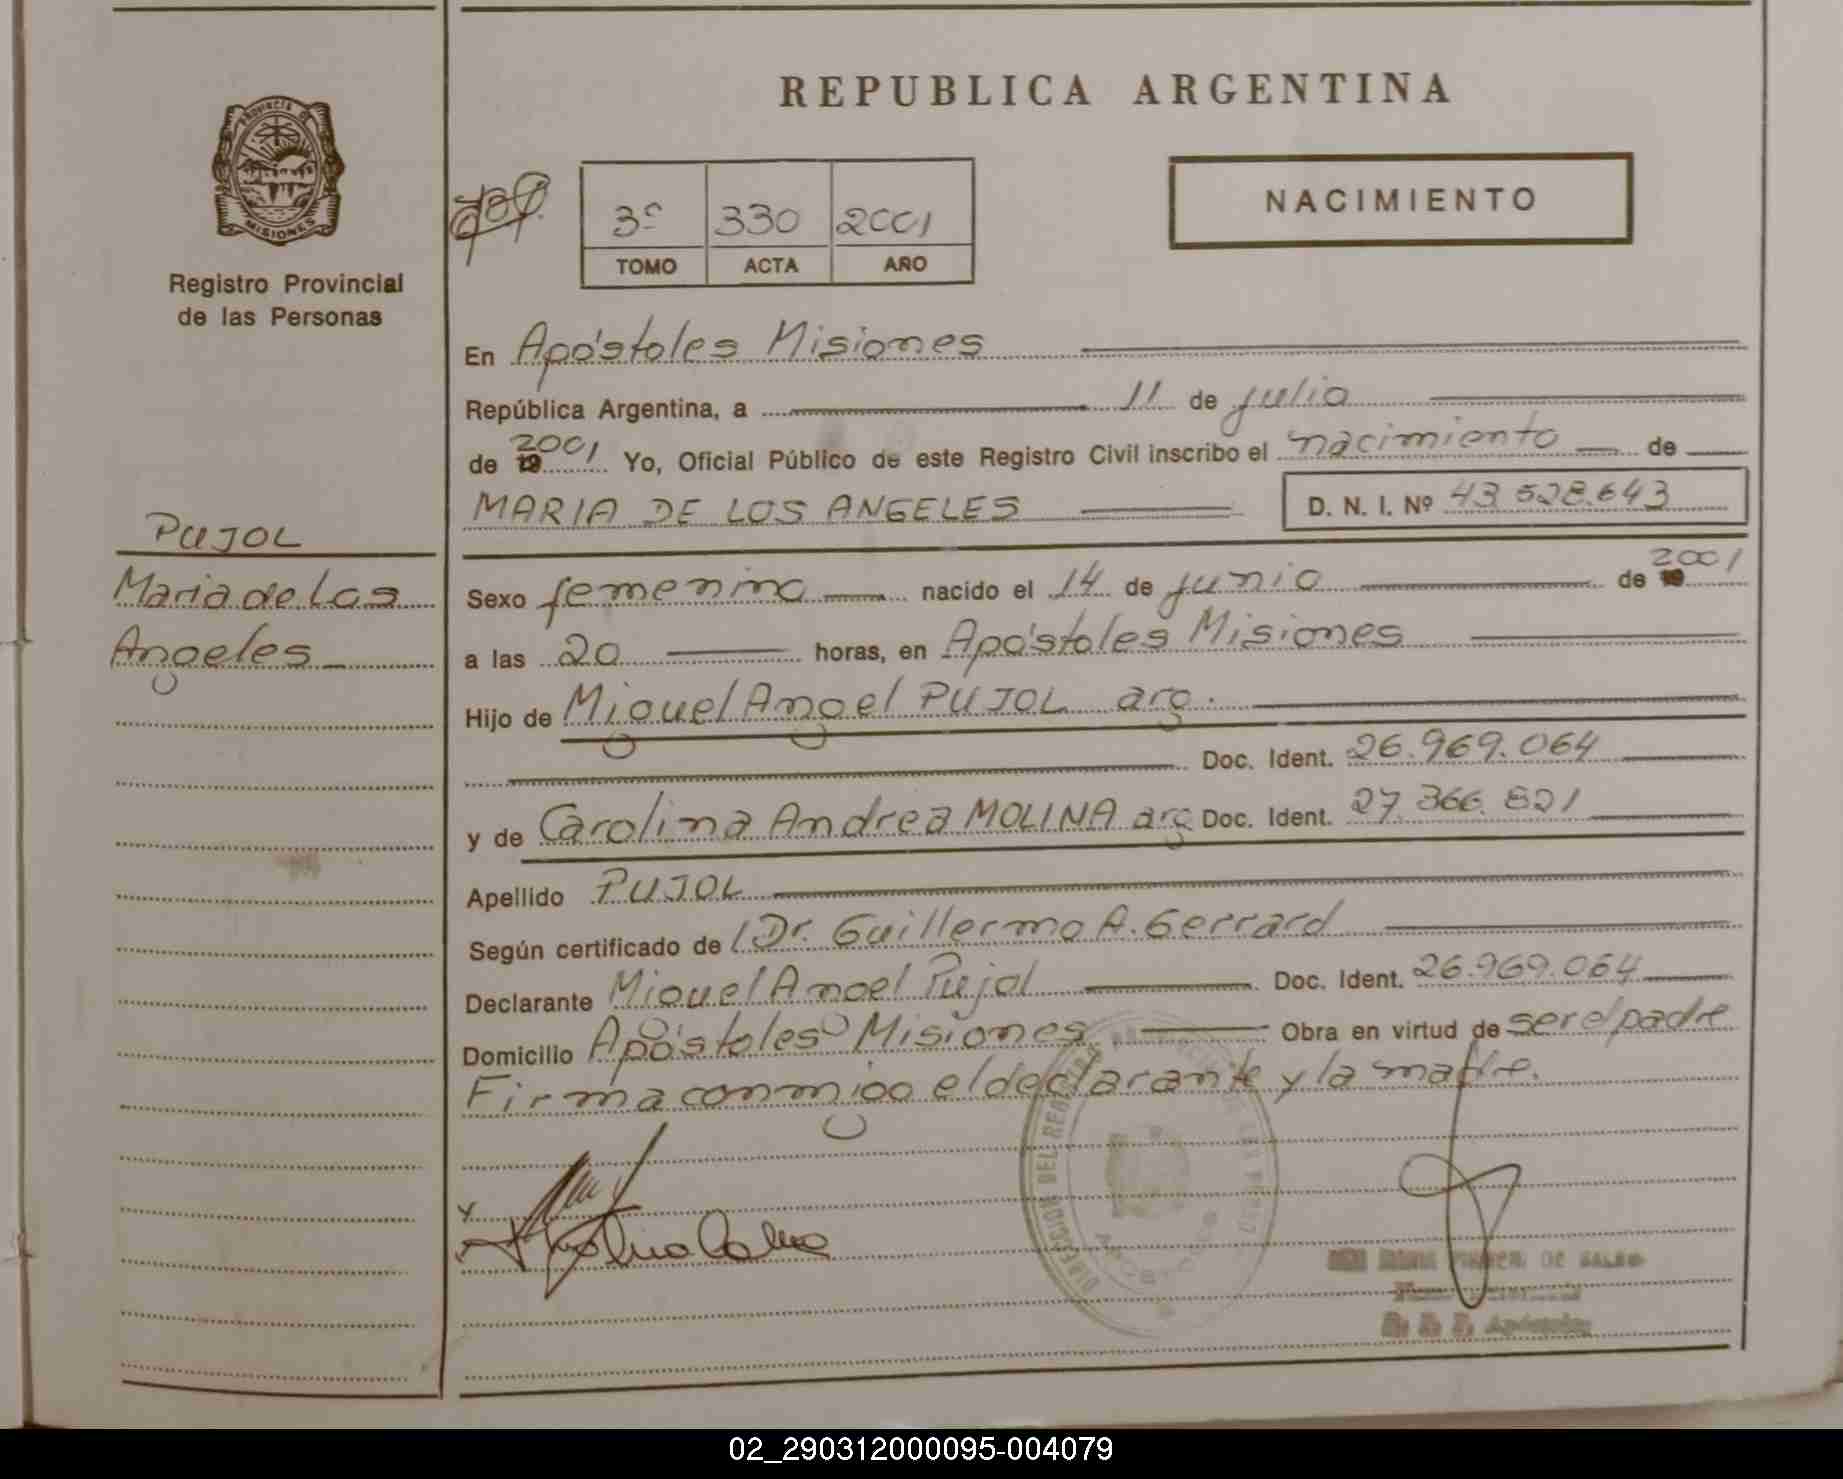 REPUBLICA ARGENTINA
PROVINCIA DE
MISIONES
Registro Provincial
de las Personas
3º 330 2001
TOMO ACTA AÑO
NACIMIENTO
En Apóstoles Misiones
República Argentina, a 11 de julio
de 19 2001 Yo, Oficial Público de este Registro Civil inscribo el nacimiento de
MARIA DE LOS ANGELES D. N. I. Nº 43.528.643
PUJOL
Maria de Los
Angeles
Sexo femenino nacido el 14 de junio de 19 2001
a las 20 horas, en Apóstoles Misiones
Hijo de Miguel Angel PUJOL arg.
Doc. Ident. 26.969.064
y de Carolina Andrea MOLINA arg Doc. Ident. 27.366.821
Apellido PUJOL
Según certificado de Dr. Guillermo A. Gerrard
Declarante Miguel Angel Pujol Doc. Ident. 26.969.064
Domicilio Apóstoles Misiones Obra en virtud de ser el padre
Firma conmigo el declarante y la madre.
DIRECCION DEL REGISTRO PROVINCIAL DE LAS PERSO
02_290312000095-004079